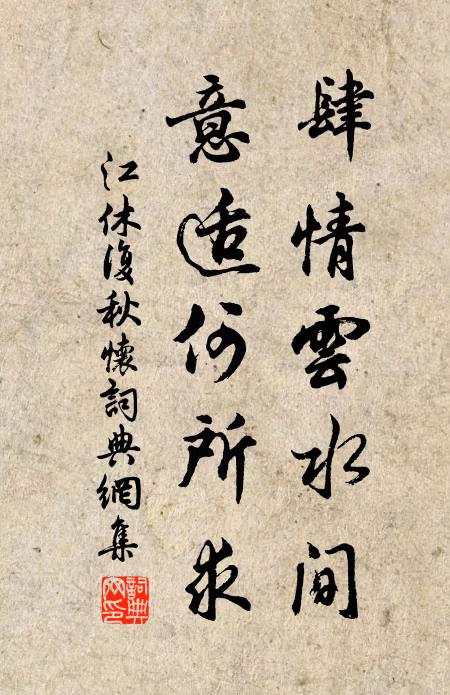 肆情雲水間
意適何所求
江休復秋懷詞典網集
詞典网印